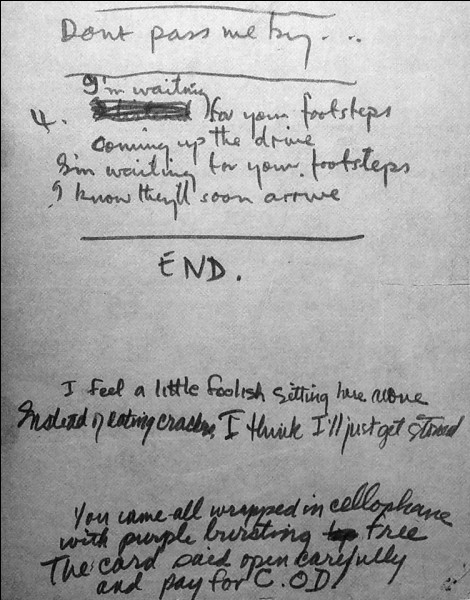 Dont pass me by...
I'm waiting
4. for your footsteps
coming up the drive
I'm waiting for your footsteps
I know they'll soon arrive
END.
I feel a little foolish sitting here alone
Instead of eating crackers I think I'll just get stoned
You came all wrapped in cellophane
with purple bursting free
The card said open carefully
and pay for C.O.D.